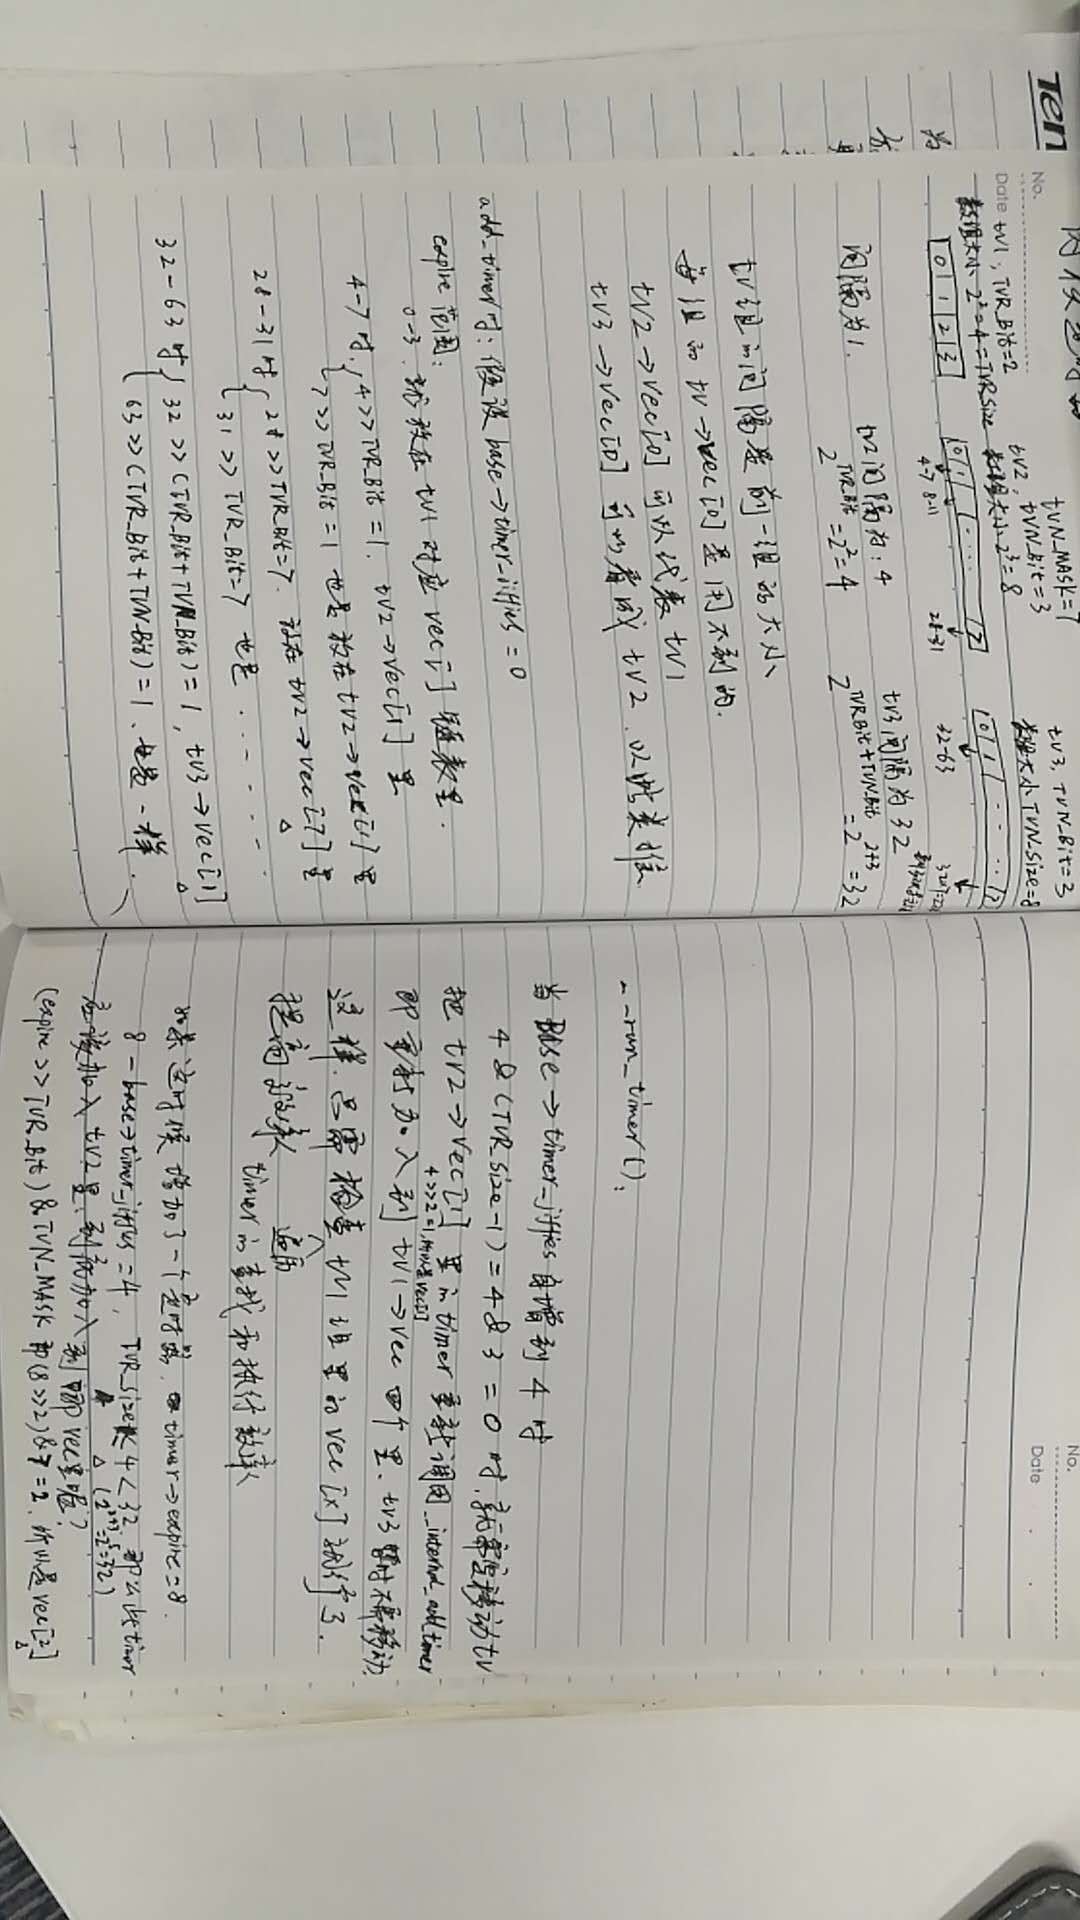 Ten
为
No.
Date
内核定时器
tv1, TVR_Bit=2
数组大小 2²=4=TVR_size
0 1 2 3
间隔为1.
TVN_MASK=7
tv2, TVN_Bit=3
数组大小 2³=8
0 1 ..... 7
4-7 8-11 28-31
tv2间隔为:4
2^TVR_Bit=2²=4
tv3, TVN_Bit=3
数组大小 TVN_size=8
0 1 .... 7
32-63
tv3间隔为32
2^TVR_Bit+TVN_Bit=2^2+3=32
tv组的间隔是前一组的大小
每组的tv→vec[0]是用不到的.
tv2→vec[0]可以代表tv1
tv3→vec[0]可以看成tv2.以此类推
add_timer时:假设base→timer_jiffies=0
expire范围:
0-3.就放在tv1对应vec[i]链表里.
4-7时.{4>>TVR_Bit=1. tv2→vec[1]里
7>>TVR_Bit=1 也是放在tv2→vec[1]里
28-31时{28>>TVR_Bit=7. 放在tv2→vec[7]里
31>>TVR_Bit=7 也是......
32-63时{32>>(TVR_Bit+TVN_Bit)=1, tv3→vec[1]
63>>(TVR_Bit+TVN_Bit)=1、也是一样.
No.
Date
__run_timer():
当Base→timer_jiffies自增到4时
4&(TVR_size-1)=4&3=0时,就需要移动tv
把tv2→vec[1]里的timer重新调用_internal_add_timer
4>>2=1,所以是vec[1]
即重新加入到tv1→vec四个里、tv3暂时不用移动
这样.只需检查tv1组里的vec[x]就行了.
遍历
提高效率
timer的查找和执行效率
如果这时候增加了一个定时器.timer→expire=8.
8-base→timer_jiffies=4, TVR_size 4<32.那么此timer
(2^2+3=2^5=32)
应该加入tv2里.到底加入到哪vec里呢?
(expire>>TVR_Bit)&TVN_MASK 即(8>>2)&7=2.所以是vec[2]